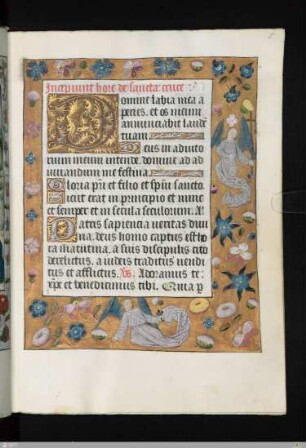 Incipiunt hore de sancta cruce
Domine labia mea a
peries. et os meum
annunciabit laudē
tuam.
Deus in adiuto
rium meum intende. domine ad ad
iuuandum me festina.
Gloria pr̄i et filio et spūi sancto
Sicut erat in principio et nunc
et semper et in secula seculorum. Ā
Patris sapiencia ueritas diui
na. deus homo captus est ho
ra matutina. a suis discipulis cito
derelictus. a iudeis traditus uendi
tus et afflictus. Vs. Adoramus te
xp̄e et benedicimus tibi. Quia p